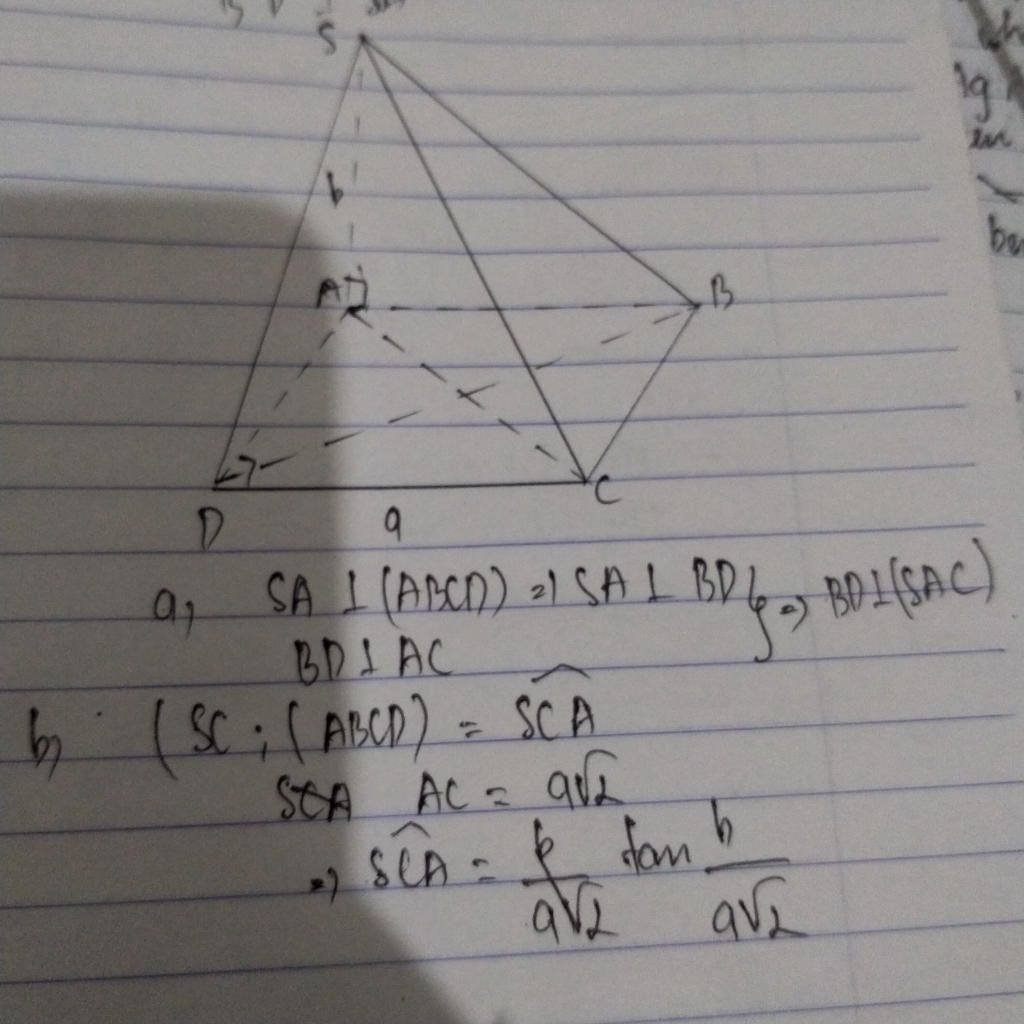 S
b
A
B
D
a
C
a, SA ⊥ (ABCD) => SA ⊥ BD } => BD ⊥ (SAC)
BD ⊥ AC
b, (SC ; (ABCD) = \widehat{SCA}
SCA AC = a√2
=> \widehat{SCA} = b/a√2 tan b/a√2